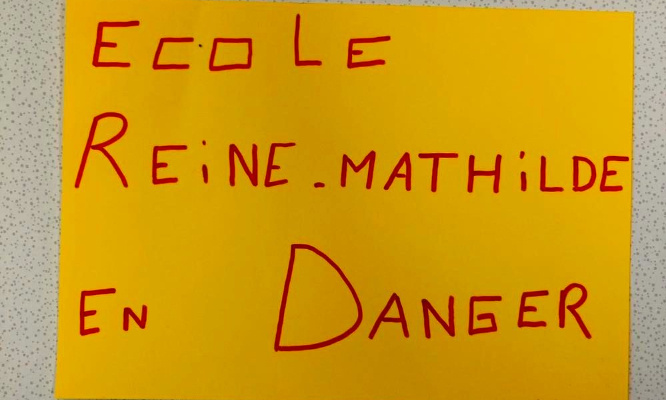 ECOLE
REiNE-MATHiLDE
EN DANGER